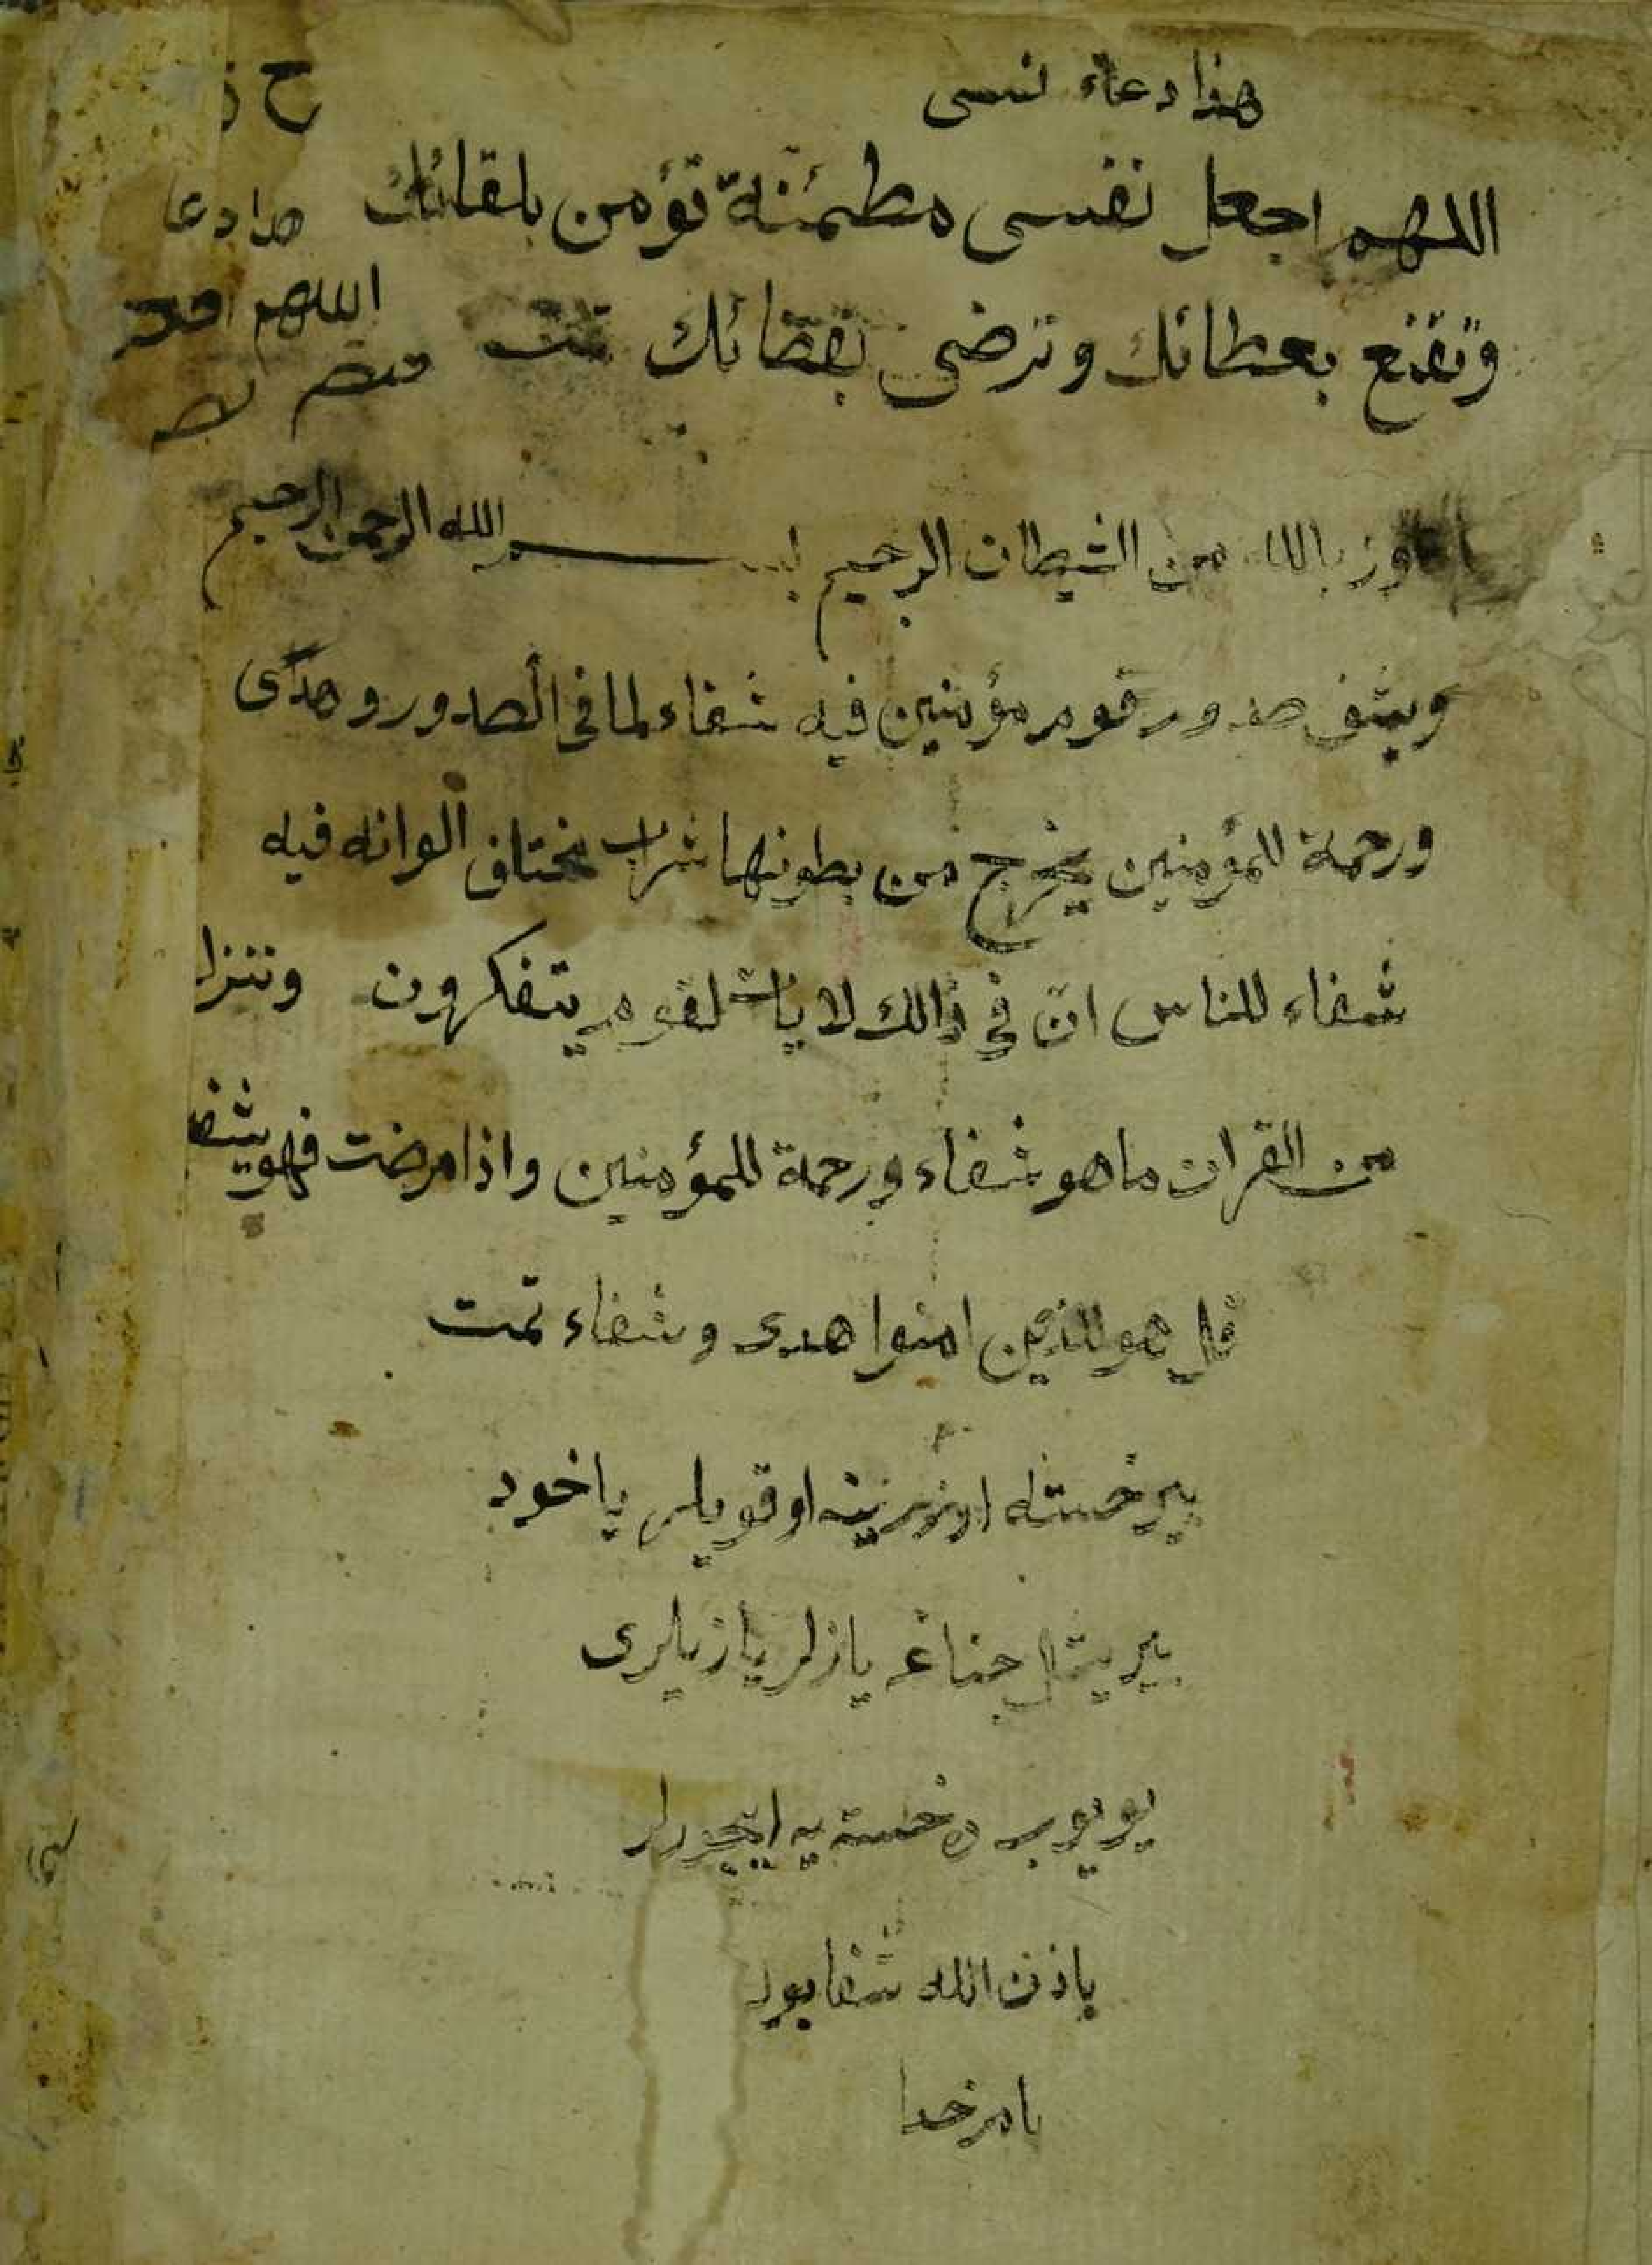 هذا دعاء نفسى
اللهم اجعل نفسى مطمئنة تؤمن بلقائك
وتقنع بعطائك وترضى بقضائك تمت
هذا دعا
اللهم
بالله من الشيطان الرجيم بسم الله الرحمن الرحيم
ويشف صدور قوم مؤمنين فيه شفاء لما فى الصدور وهدًى
ورحمة للمؤمنين يخرج من بطونها شراب مختلف الوانه فيه
شفاء للناس ان فى ذالك لايات لقوم يتفكرون وننزل
من القران ما هو شفاء ورحمة للمؤمنين واذا مرضت فهو يشف
قل هو للذين امنوا هدى وشفاء تمت
بير خسته اوزرينه اوقويلر ياخود
بير يشل جناغه يازلر يازيلرى
يويوب خسته يه ايچردلر
باذن الله شفا بولر
بامر خدا